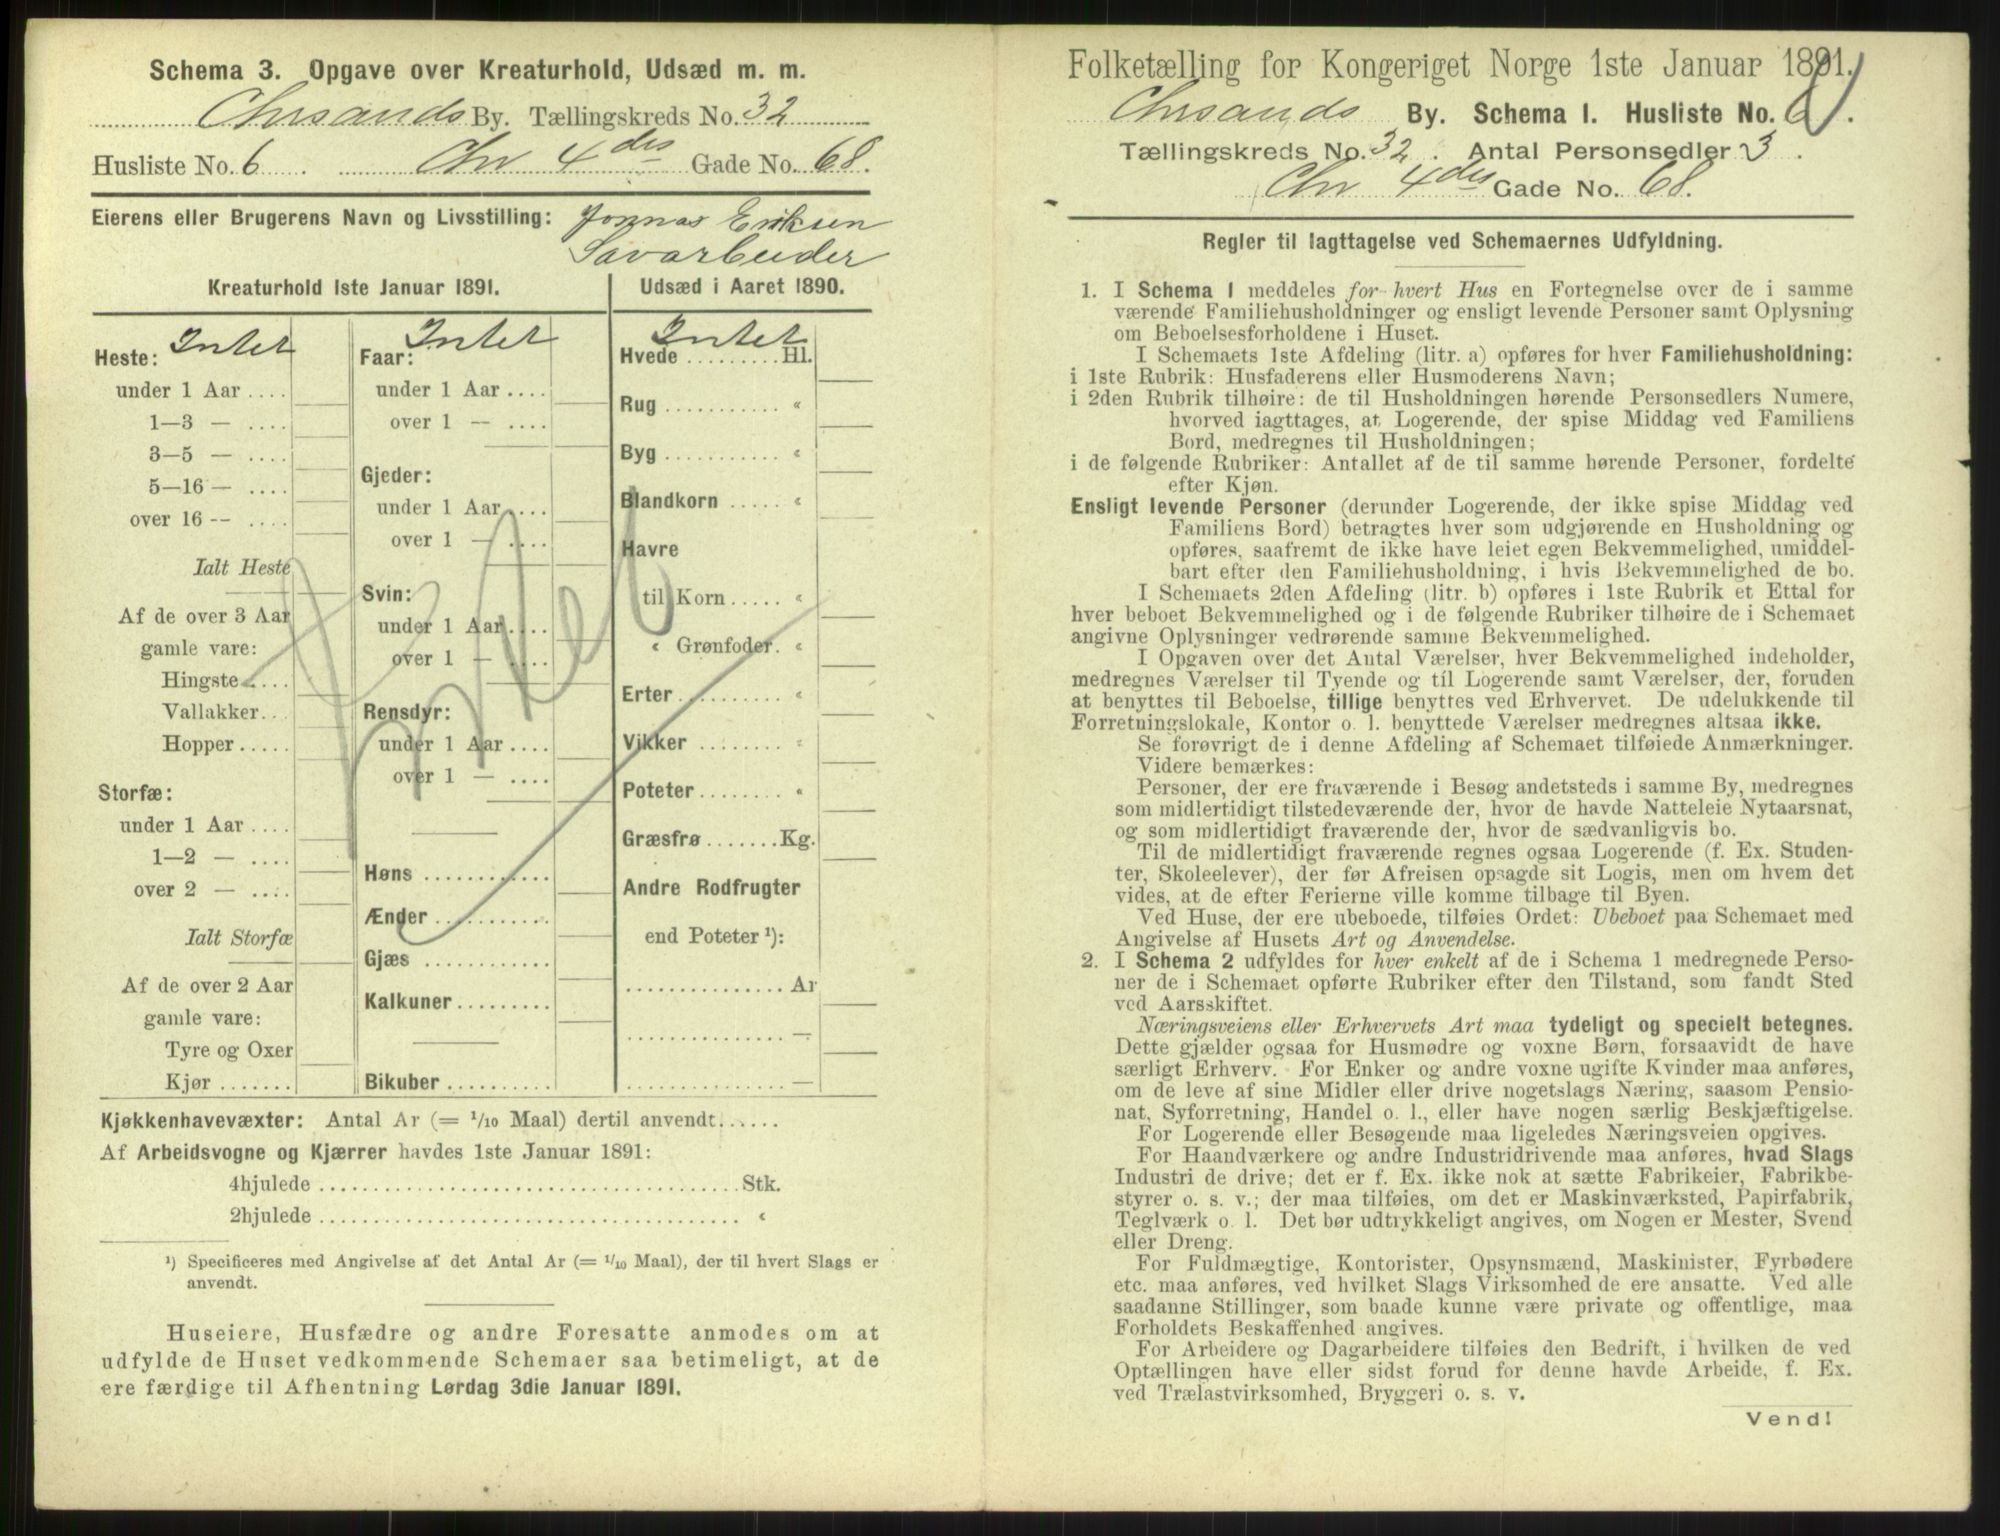 Schema 3. Opgave over Kreaturhold, Udsæd m. m.
Chrsands By. Tællingskreds No. 32
Husliste No. 6. Chr 4des Gade No. 68.
Eierens eller Brugerens Navn og Livsstilling: Jonnas Eriksen
Savarbeider
Kreaturhold 1ste Januar 1891.
Intet
Heste:
under 1 Aar ....
1—3 — ....
3—5 — ....
5—16 — ....
over 16 -- ....
Ialt Heste
Af de over 3 Aar
gamle vare:
Hingste ....
Vallakker...
Hopper.....
Storfæ:
under 1 Aar ....
1—2 — ....
over 2 — ....
Ialt Storfæ
Af de over 2 Aar
gamle vare:
Tyre og Oxer
Kjør .......
Intet
Faar:
under 1 Aar ....
over 1 — ....
Gjeder:
under 1 Aar ....
over 1 — ....
Svin:
under 1 Aar....
over 1 — ....
Rensdyr:
under 1 Aar ....
over 1 — ....
Høns ............
Ænder ...........
Gjæs ............
Kalkuner.........
Bikuber ..........
Intet
Udsæd i Aaret 1890.
Intet
Hvede .........Hl.
Rug ........... «
Byg ........... «
Blandkorn ..... «
Havre
til Korn..... «
« Grønfoder. «
Erter ......... «
Vikker ........ «
Poteter........ «
Græsfrø .......Kg.
Andre Rodfrugter
end Poteter ¹):
............... Ar
............... —
............... —
Kjøkkenhavevæxter: Antal Ar (= 1/10 Maal) dertil anvendt......
Af Arbeidsvogne og Kjærrer havdes 1ste Januar 1891:
4hjulede ........................................ Stk.
2hjulede ........................................ «
¹) Specificeres med Angivelse af det Antal Ar (= 1/10 Maal), der til hvert Slags er
anvendt.
Huseiere, Husfædre og andre Foresatte anmodes om at
udfylde de Huset vedkommende Schemaer saa betimeligt, at de
ere færdige til Afhentning Lørdag 3die Januar 1891.
Folketælling for Kongeriget Norge 1ste Januar 1891.
Chrsands By. Schema 1. Husliste No. 6.
Tællingskreds No. 32. Antal Personsedler 3.
Chr 4des Gade No. 68.
Regler til Iagttagelse ved Schemaernes Udfyldning.
1. I Schema 1 meddeles for hvert Hus en Fortegnelse over de i samme
værende Familiehusholdninger og ensligt levende Personer samt Oplysning
om Beboelsesforholdene i Huset.
I Schemaets 1ste Afdeling (litr. a) opføres for hver Familiehusholdning:
i 1ste Rubrik: Husfaderens eller Husmoderens Navn;
i 2den Rubrik tilhøire: de til Husholdningen hørende Personsedlers Numere,
hvorved iagttages, at Logerende, der spise Middag ved Familiens
Bord, medregnes til Husholdningen;
i de følgende Rubriker: Antallet af de til samme hørende Personer, fordelte
efter Kjøn.
Ensligt levende Personer (derunder Logerende, der ikke spise Middag ved
Familiens Bord) betragtes hver som udgjørende en Husholdning og
opføres, saafremt de ikke have leiet egen Bekvemmelighed, umiddel-
bart efter den Familiehusholdning, i hvis Bekvemmelighed de bo.
I Schemaets 2den Afdeling (litr. b) opføres i 1ste Rubrik et Ettal for
hver beboet Bekvemmelighed og i de følgende Rubriker tilhøire de i Schemaet
angivne Oplysninger vedrørende samme Bekvemmelighed.
I Opgaven over det Antal Værelser, hver Bekvemmelighed indeholder,
medregnes Værelser til Tyende og til Logerende samt Værelser, der, foruden
at benyttes til Beboelse, tillige benyttes ved Erhvervet. De udelukkende til
Forretningslokale, Kontor o. l. benyttede Værelser medregnes altsaa ikke.
Se forøvrigt de i denne Afdeling af Schemaet tilføiede Anmærkninger.
Videre bemærkes:
Personer, der ere fraværende i Besøg andetsteds i samme By, medregnes
som midlertidigt tilstedeværende der, hvor de havde Natteleie Nytaarsnat,
og som midlertidigt fraværende der, hvor de sædvanligvis bo.
Til de midlertidigt fraværende regnes ogsaa Logerende (f. Ex. Studen-
ter, Skoleelever), der før Afreisen opsagde sit Logis, men om hvem det
vides, at de efter Ferierne ville komme tilbage til Byen.
Ved Huse, der ere ubeboede, tilføies Ordet: Ubeboet paa Schemaet med
Angivelse af Husets Art og Anvendelse.
2. I Schema 2 udfyldes for hver enkelt af de i Schema 1 medregnede Perso-
ner de i Schemaet opførte Rubriker efter den Tilstand, som fandt Sted
ved Aarsskiftet.
Næringsveiens eller Erhvervets Art maa tydeligt og specielt betegnes.
Dette gjælder ogsaa for Husmødre og voxne Børn, forsaavidt de have
særligt Erhverv. For Enker og andre voxne ugifte Kvinder maa anføres,
om de leve af sine Midler eller drive nogetslags Næring, saasom Pensio-
nat, Syforretning, Handel o. l., eller have nogen særlig Beskjæftigelse.
For Logerende eller Besøgende maa ligeledes Næringsveien opgives.
For Haandværkere og andre Industridrivende maa anføres, hvad Slags
Industri de drive; det er f. Ex. ikke nok at sætte Fabrikeier, Fabrikbe-
styrer o. s. v.; der maa tilføies, om det er Maskinværksted, Papirfabrik,
Teglværk o. l. Det bør udtrykkeligt angives, om Nogen er Mester, Svend
eller Dreng.
For Fuldmægtige, Kontorister, Opsynsmænd, Maskinister, Fyrbødere
etc. maa anføres, ved hvilket Slags Virksomhed de ere ansatte. Ved alle
saadanne Stillinger, som baade kunne være private og offentlige, maa
Forholdets Beskaffenhed angives.
For Arbeidere og Dagarbeidere tilføies den Bedrift, i hvilken de ved
Optællingen have eller sidst forud for denne havde Arbeide, f. Ex.
ved Trælastvirksomhed, Bryggeri o. s. v.
Vend!